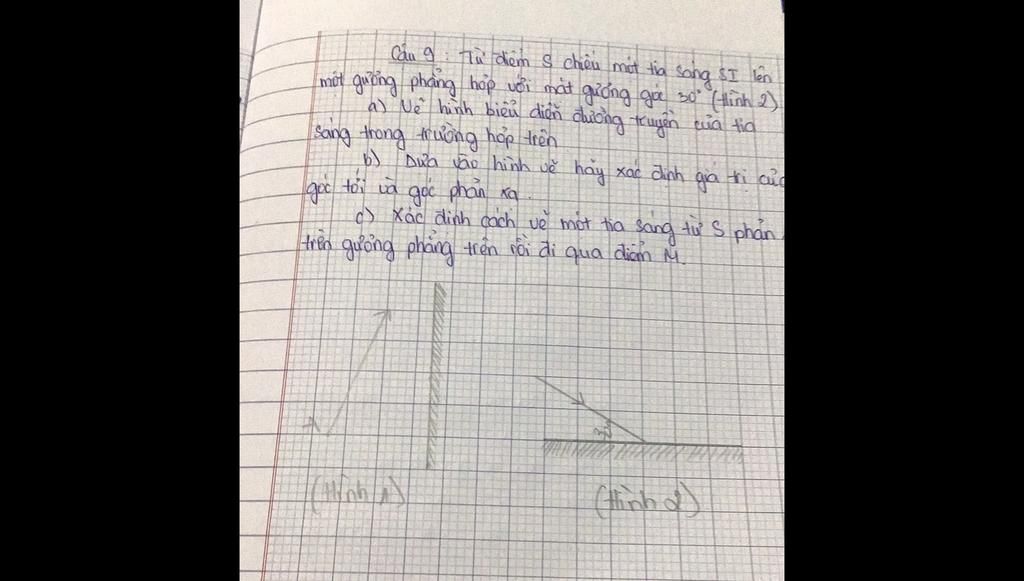 Câu 9: Từ điểm S chiếu một tia sáng SI lên
một gương phẳng hợp với mặt gương góc 30° (Hình 2)
a) Vẽ hình biểu diễn đường truyền của tia
sáng trong trường hợp trên
b) Dựa vào hình vẽ hãy xác định giá trị của
góc tới và góc phản xạ.
c) Xác định cách vẽ một tia sáng từ S phản
trên gương phẳng trên rồi đi qua điểm M.
(Hình 1)
(Hình 2)